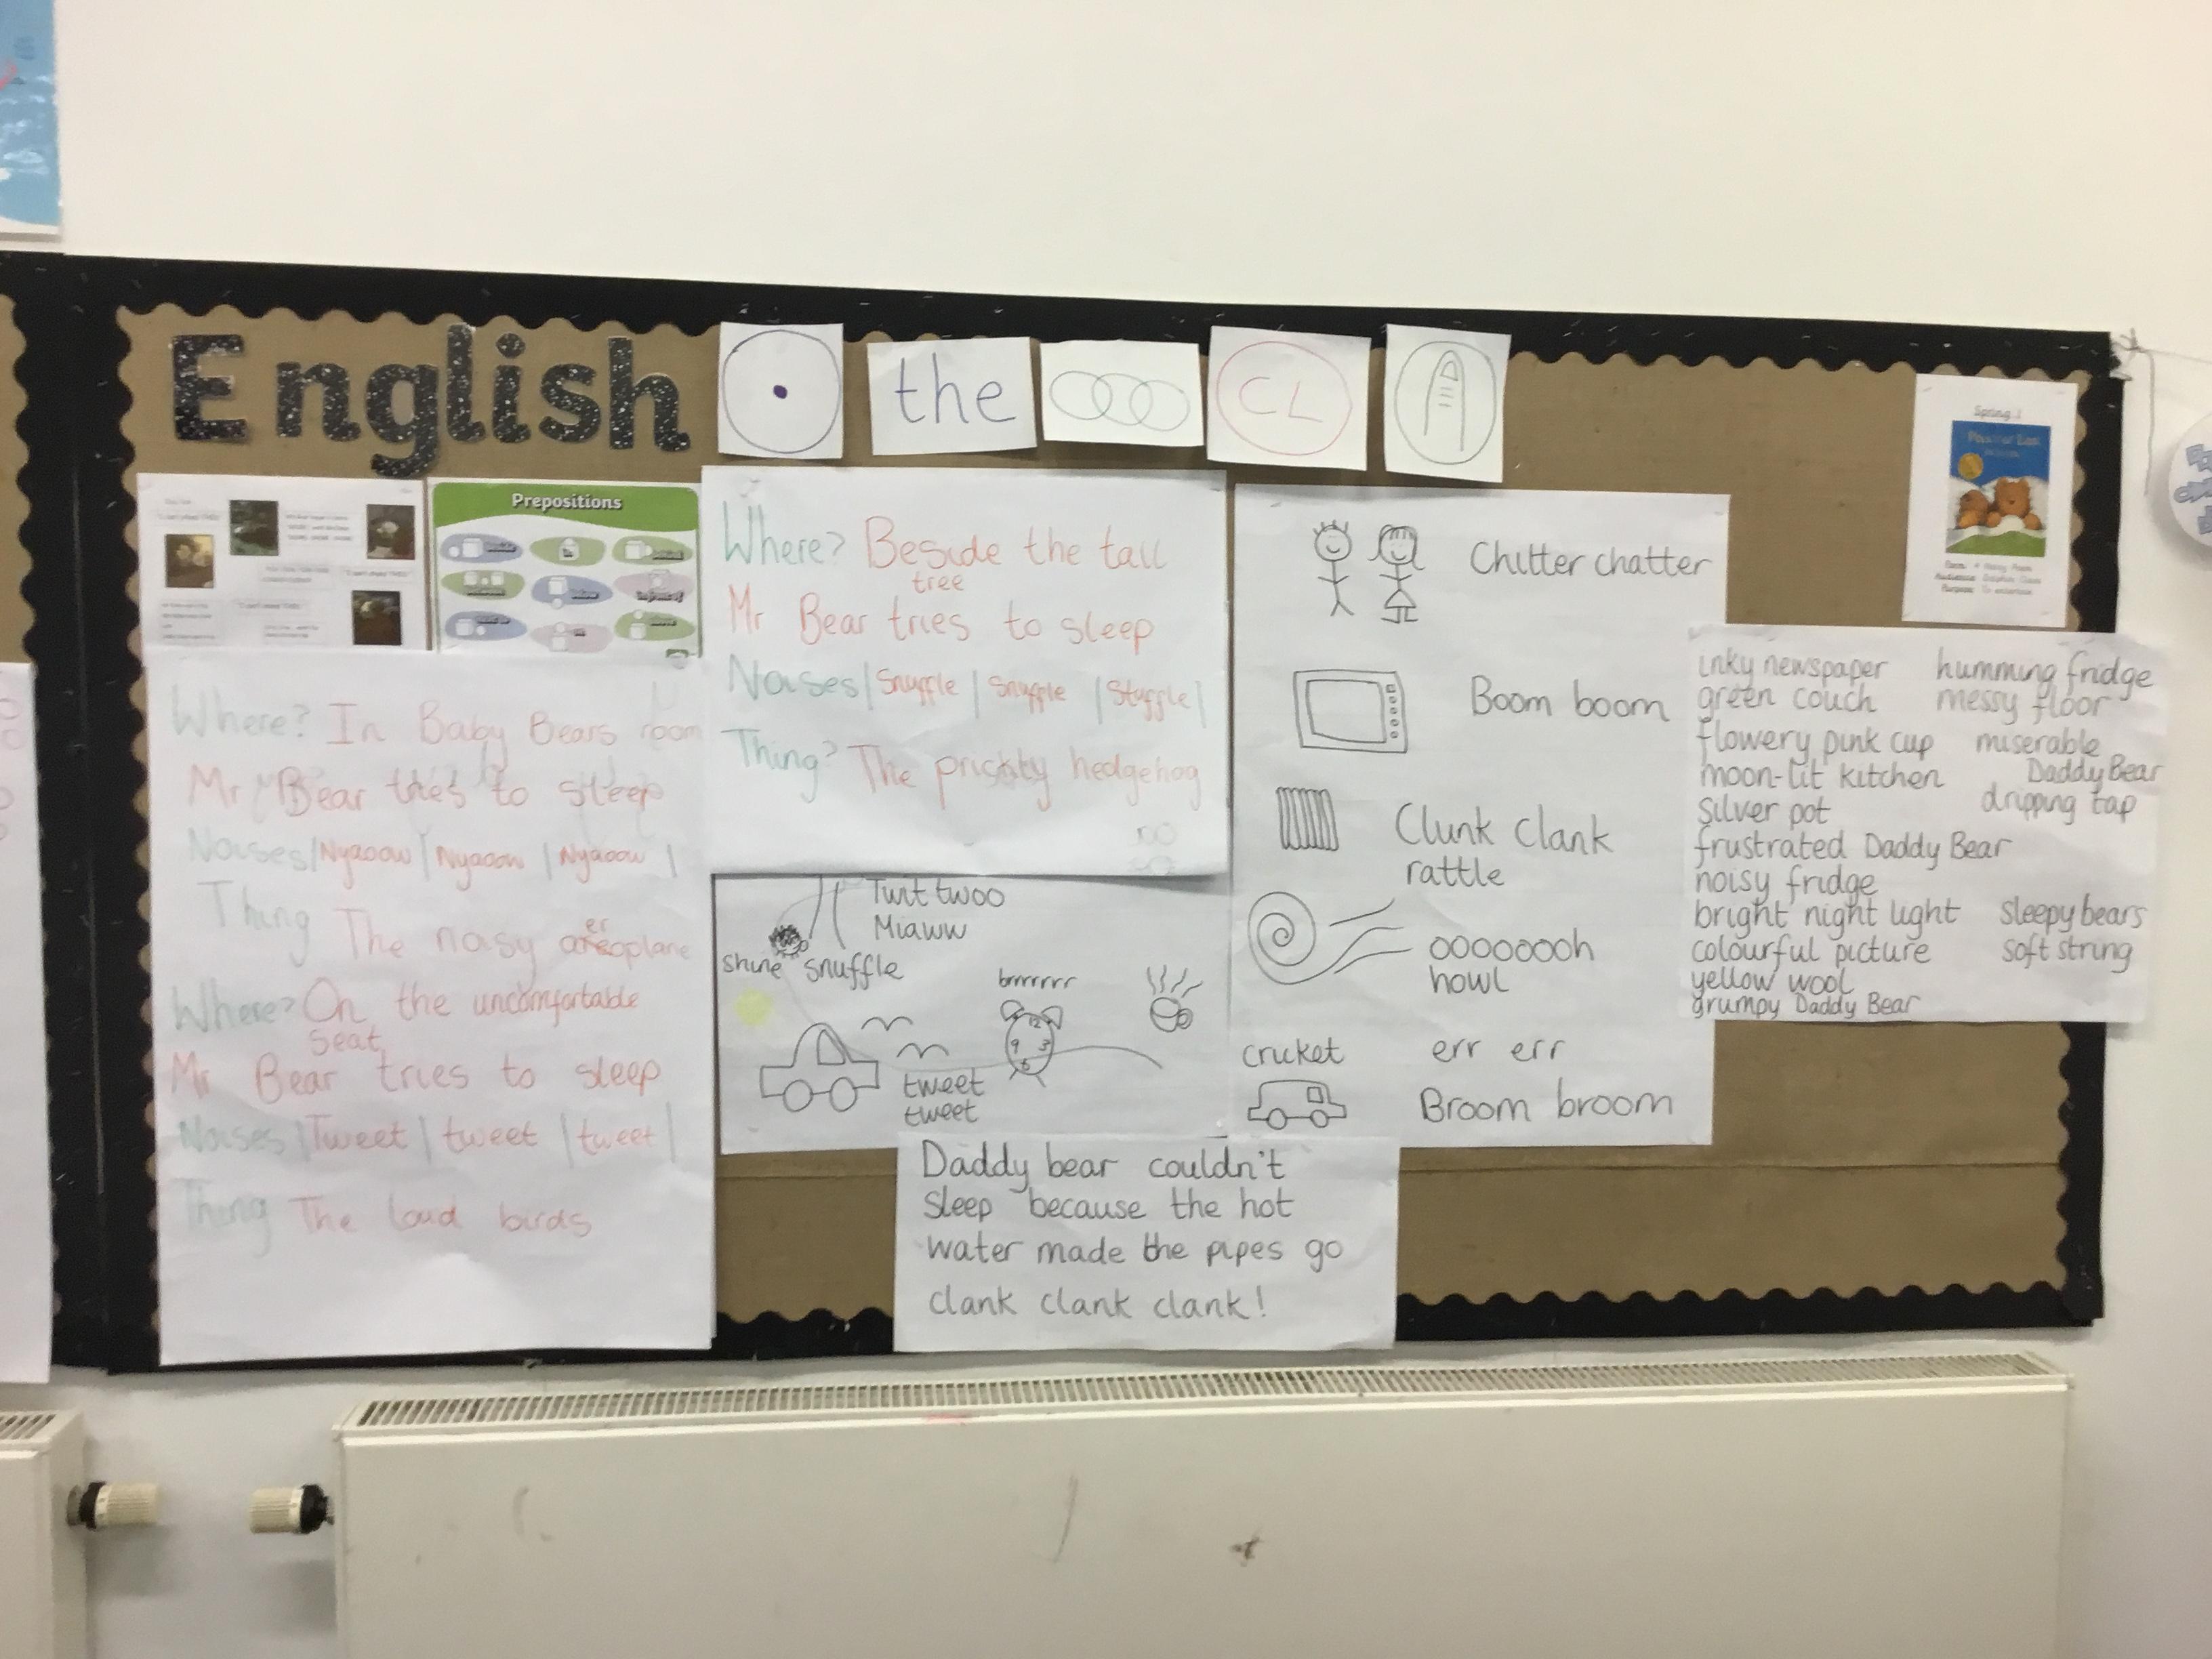 English
the
CL
Prepositions
Where? Beside the tall
tree
Mr Bear tries to sleep
Noises | Snuffle | Snuffle | Stuffle |
Thing? The prickly hedgehog
Where? In Baby Bears room
Mr Bear tries to sleep
Noises | Nyaoow | Nyaoow | Nyaoow |
Thing The noisy
er
oplane
Where? On the uncomfortable
seat
Mr Bear tries to sleep
Noises | Tweet | tweet | tweet |
Thing The loud birds
Twit twoo
Miaww
shine snuffle
brrrrrrr
12
9 3
6
tweet
tweet
Daddy bear couldn't
sleep because the hot
water made the pipes go
clank clank clank!
Chitter chatter
Boom boom
Clunk clank
rattle
oooooooh
howl
cricket err err
Broom broom
Spring 1
inky newspaper humming fridge
green couch messy floor
flowery pink cup miserable
Daddy Bear
moon-lit kitchen
silver pot dripping tap
frustrated Daddy Bear
noisy fridge
bright night light sleepy bears
colourful picture soft string
yellow wool
grumpy Daddy Bear